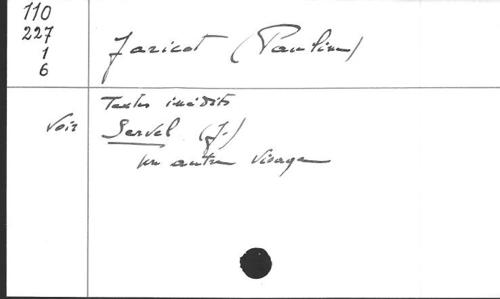 110
227
1
6
Jaricot (Pauline)
Textes inédits
Voir Servel (J.)
Un autre visage